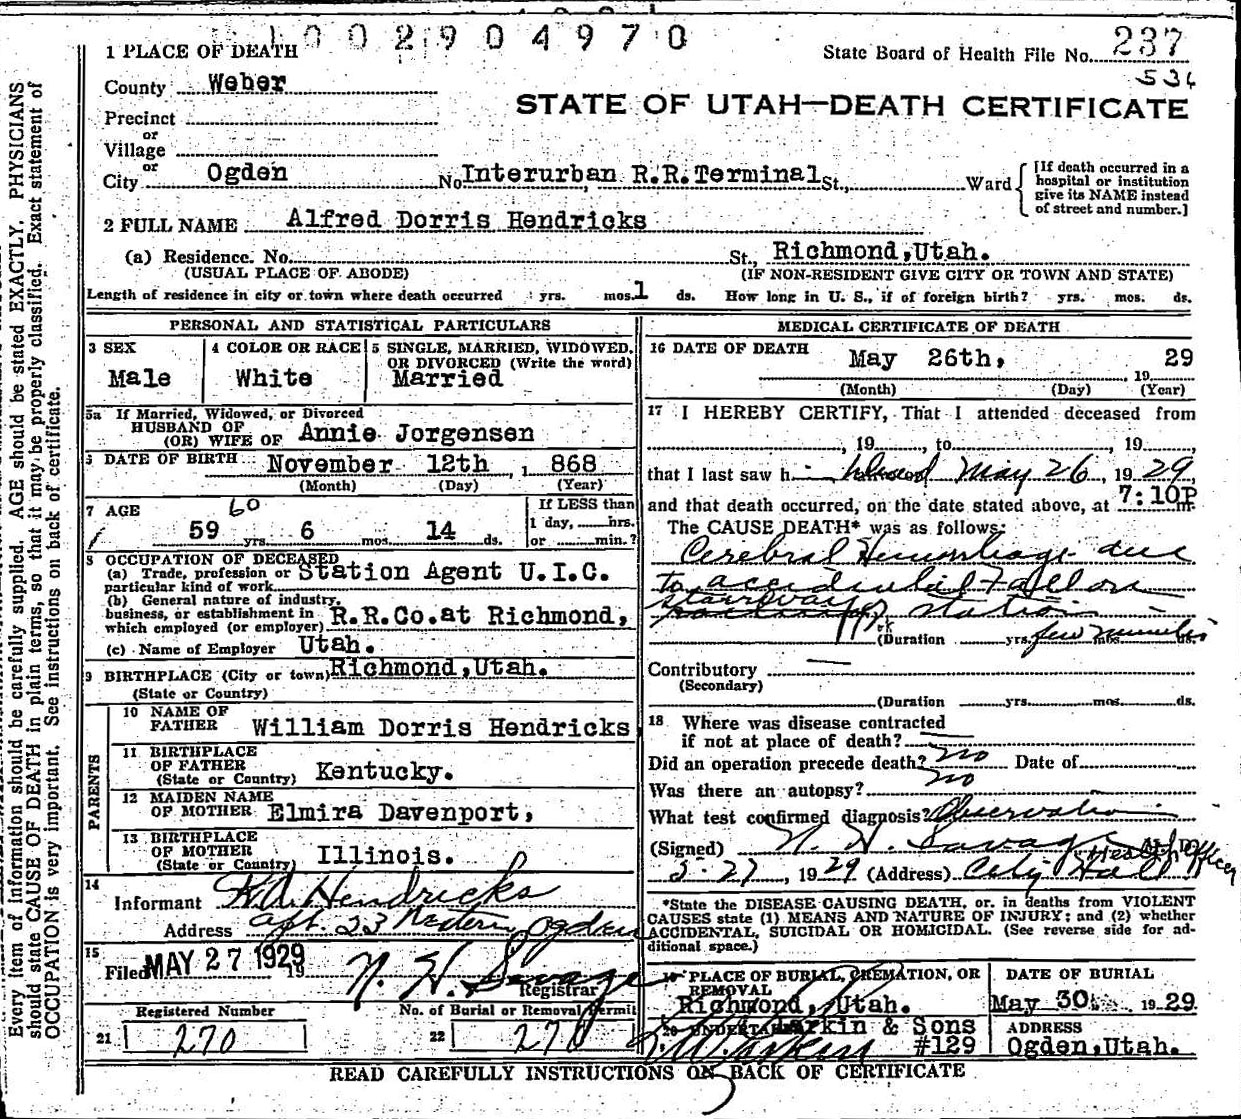 1002904970
1 PLACE OF DEATH
State Board of Health File No. 237
536
County Weber
STATE OF UTAH—DEATH CERTIFICATE
Precinct
or
Village
or
City Ogden No Interurban R.R.Terminal St., Ward
[If death occurred in a hospital or institution give its NAME instead of street and number.]
2 FULL NAME Alfred Dorris Hendricks
(a) Residence. No. St., Richmond,Utah.
(USUAL PLACE OF ABODE) (IF NON-RESIDENT GIVE CITY OR TOWN AND STATE)
Length of residence in city or town where death occurred yrs. mos. 1 ds. How long in U. S., if of foreign birth? yrs. mos. ds.
PERSONAL AND STATISTICAL PARTICULARS
3 SEX
Male
4 COLOR OR RACE
White
5 SINGLE, MARRIED, WIDOWED,
OR DIVORCED (Write the word)
Married
5a If Married, Widowed, or Divorced
HUSBAND OF
(OR) WIFE OF Annie Jorgensen
6 DATE OF BIRTH November 12th , 1 868
(Month) (Day) (Year)
60
7 AGE
59 yrs. 6 mos. 14 ds.
If LESS than
1 day, hrs.
or min.?
8 OCCUPATION OF DECEASED
(a) Trade, profession or Station Agent U.I.C.
particular kind of work
(b) General nature of industry,
business, or establishment in
which employed (or employer) R.R.Co.at Richmond,
(c) Name of Employer Utah.
9 BIRTHPLACE (City or town) Richmond,Utah.
(State or Country)
PARENTS
10 NAME OF
FATHER William Dorris Hendricks
11 BIRTHPLACE
OF FATHER
(State or Country) Kentucky.
12 MAIDEN NAME
OF MOTHER Elmira Davenport,
13 BIRTHPLACE
OF MOTHER
(State or Country) Illinois.
14
Informant Hendricks
Address Apt. 23 Ogden
15
Filed MAY 27 1929 19
N. H. Savage
Registrar
Registered Number
21 270
No. of Burial or Removal Permit
22 270
MEDICAL CERTIFICATE OF DEATH
16 DATE OF DEATH May 26th, 19 29
(Month) (Day) (Year)
17 I HEREBY CERTIFY, That I attended deceased from
, 19 , to , 19 ,
that I last saw h May 26, 1929,
and that death occurred, on the date stated above, at 7:10P m.
The CAUSE DEATH* was as follows:
Cerebral Hemorrhage due
to accidental Fall on
stairway station
(Duration yrs. few minutes mos. ds.
Contributory
(Secondary)
(Duration yrs. mos. ds.
18 Where was disease contracted
if not at place of death?
Did an operation precede death? no Date of
Was there an autopsy? no
What test confirmed diagnosis? Observation
(Signed) N. H. Savage M. D.
Health Officer
5-27, 1929 (Address) City Hall
*State the DISEASE CAUSING DEATH, or. in deaths from VIOLENT
CAUSES state (1) MEANS AND NATURE OF INJURY; and (2) whether
ACCIDENTAL, SUICIDAL OR HOMICIDAL. (See reverse side for ad-
ditional space.)
19 PLACE OF BURIAL, CREMATION, OR
REMOVAL
Richmond, Utah.
DATE OF BURIAL
May 30 1929
20 UNDERTAKER Larkin & Sons
#129
ADDRESS
Ogden,Utah.
READ CAREFULLY INSTRUCTIONS ON BACK OF CERTIFICATE
Every item of information should be carefully supplied. AGE should be stated EXACTLY. PHYSICIANS
should state CAUSE OF DEATH in plain terms, so that it may be properly classified. Exact statement of
OCCUPATION is very important. See instructions on back of certificate.